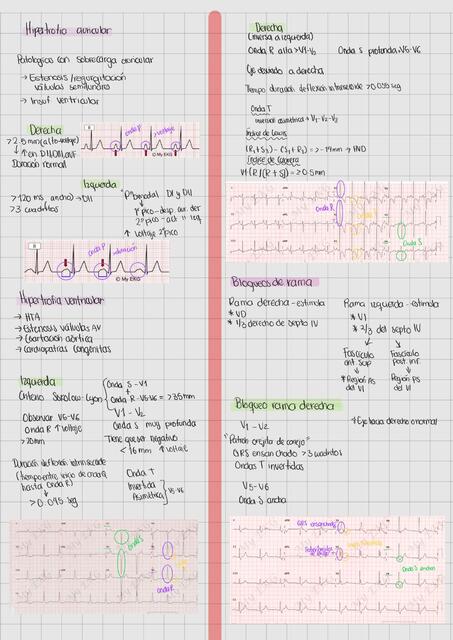 Hipertrofia auricular
Patologías con sobrecarga auricular
→ Estenosis/regurgitación
válvulas semilunares
→ Insuf ventricular
Derecha
>2.5mm (alto-voltaje)
↑ en DII, DIII, aVF
Duración normal
II
onda P
↑ voltaje
© My EKG
Izquierda
>120 ms ancho → DII
>3 cuadritos
"P" bimodal DI y DII
1º pico - desp. aur. der
2º pico - act. izq
↑ voltaje 2º pico
II
onda P
duración
© My EKG
Hipertrofia ventricular
→ HTA
→ Estenosis válvulas AV
→ Coartación aórtica
→ Cardiopatías congénitas
Izquierda
Criterio Sokolow-Lyon
Onda S - V1
Onda R - V5-V6 = >35mm
V1 - V2
Observar V5-V6
Onda R ↑ voltaje
>20mm
Onda S muy profunda
Tiene que ser negativo
<16mm ↑ voltaje
Duración deflexión intrinsecoide
(tiempo entre inicio de onda Q
hasta onda R)
>0.045 seg
Onda T
Invertida
Asimétrica
V5-V6
onda S
onda R
Derecha
(inversa a izquierda)
Onda R alta >V1-V2
Onda S profunda V5-V6
Eje desviado a derecha
Tiempo duración deflexión intrinsecoide >0.035 seg
Onda T
invertida asimétrica + V1-V2-V3
Índice de Lewis
(R1+S3) - (S1+R3) = >-14mm → HVD
Índice de Cabrera
V1 (R/(R+S)) = ≥0.5mm
Onda R
Onda S
Bloqueos de rama
Rama derecha - estimula
* VD
* 1/3 derecho de septo IV
Rama izquierda - estimula
* VI
* 2/3 del septo IV
Fascículo
ant. sup
* Región AS
del VI
Fascículo
post. inf.
Región PS
del VI
Bloqueo rama derecha
V1 - V2
* Eje hacia derecho o normal
"Patrón orejita de conejo"
QRS ensanchado >3 cuadritos
Ondas T invertidas
V5-V6
Onda S ancha
QRS ensanchado
Onda S ancha